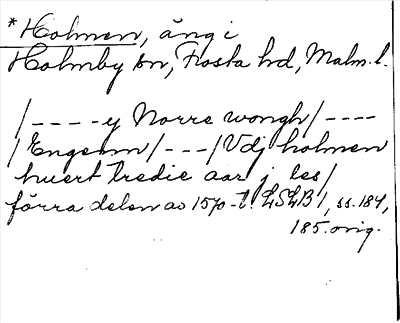 *Holmen, äng i
Holmby sn, Frosta hd, Malm. l.
/----y Norre wongh/----
/Engenn/---/Vdj holmen
huert tredie aar j les/
förra delen av 1570-t. LSLB, ss. 184,
185. orig.